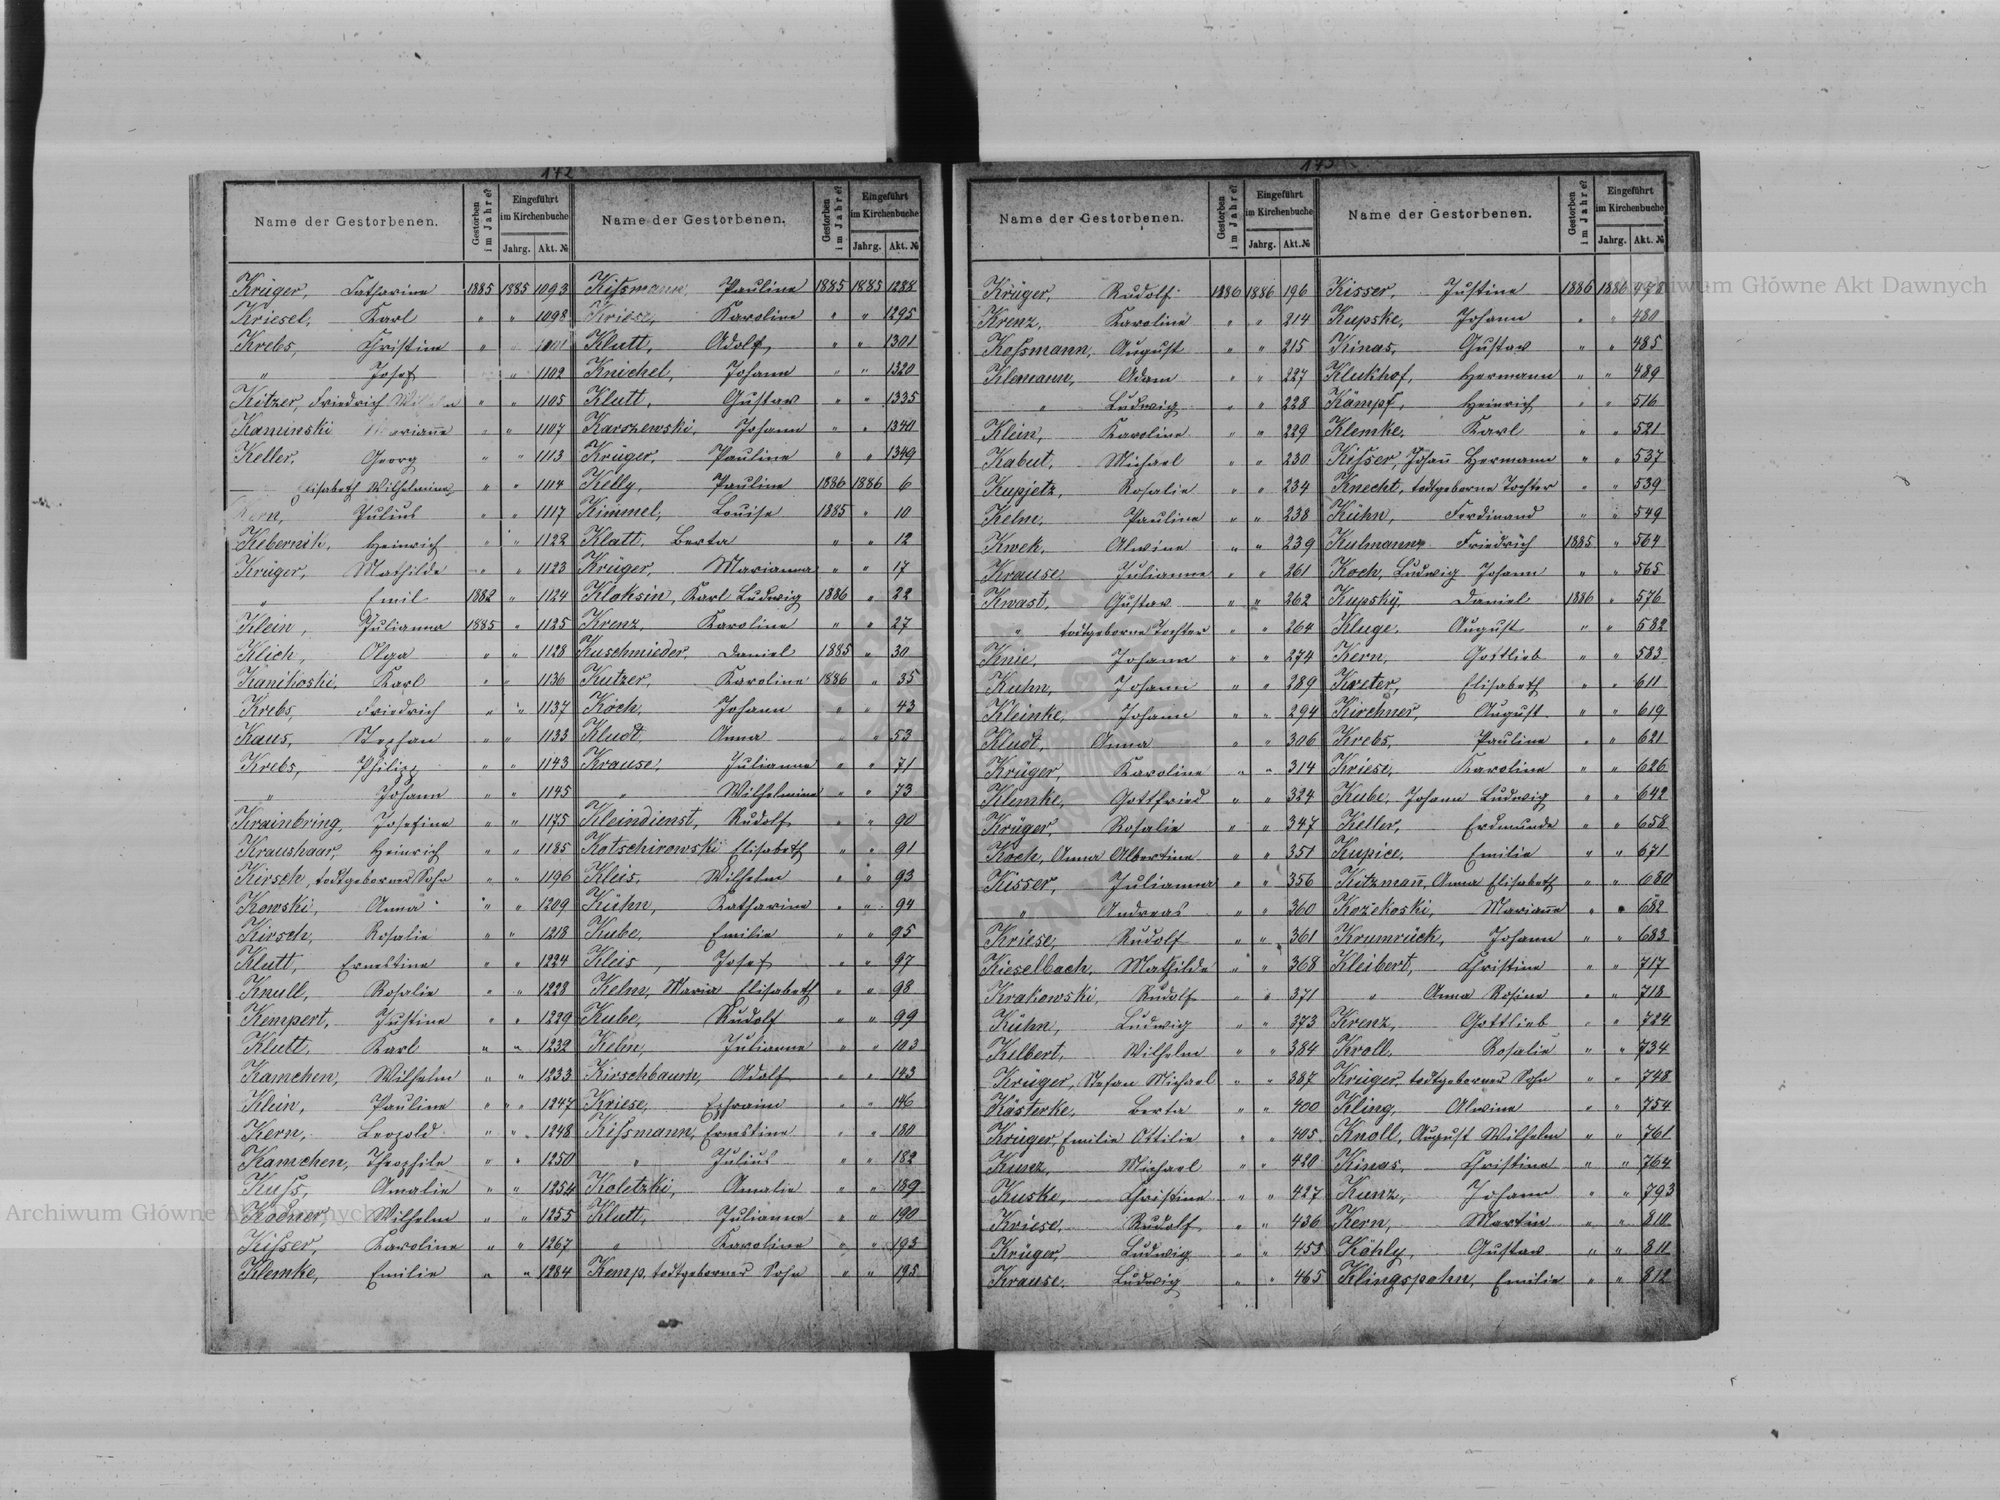 172
Name der Gestorbenen. Gestorben im Jahre? Eingeführt im Kirchenbuche Jahrg. Akt. №
Name der Gestorbenen. Gestorben im Jahre? Eingeführt im Kirchenbuche Jahrg. Akt. №
Krüger, Catharine 1885 1885 1093
Kriesel, Karl " " 1098
Krebs, Christine " 1101
" Josef " 1102
Kitzer, Friedrich Wilhelm " " 1105
Kaminski Marianne " " 1107
Keller, Georg " " 1113
— Elisabeth Wilhelmine " " 1114
Kern, Julius " " 1117
Kebernik, Heinrich " " 1122
Krüger, Mathilde " " 1123
" Emil 1882 " 1124
Klein, Julianna 1885 " 1125
Klich, Olga " " 1128
Kanikoski, Karl " " 1136
Krebs, Friedrich " " 1137
Kaus, Stephan " " 1133
Krebs, Philipp " " 1143
" Johann " " 1145
Krainbring, Josefine " " 1175
Kraushaar, Heinrich " " 1185
Kirsch, todtgeborner Sohn " " 1196
Kowski, Anna " " 1209
Kirsch, Rosalie " " 1218
Klutt, Ernestine " " 1224
Knull, Rosalie " " 1228
Kempert, Justine " " 1229
Klutt, Karl " " 1232
Kamchen, Wilhelm " " 1233
Klein, Pauline " " 1247
Kern, Leopold " " 1248
Kamchen, Theophile " " 1250
Kuss, Amalie " " 1254
Wilhelm " " 1255
Kisser, Karoline " " 1267
Klemke, Emilie " " 1284
Kissmann, Pauline 1885 1885 1288
Kriese, Karoline " " 1295
Klutt, Adolf " " 1301
Knichel, Johann " " 1320
Klutt, Gustav " " 1335
Karszewski, Johann " " 1340
Krüger, Pauline " " 1349
Kelly, Pauline 1886 1886 6
Kimmel, Louise 1885 " 10
Klatt, Berta " " 12
Krüger, Marianna " " 17
Kloksin, Karl Ludwig 1886 " 22
Krenz, Karoline " " 27
Kuschmieder Daniel 1885 " 30
Kutzer, Karoline 1886 " 35
Koch, Johann " " 43
Kludt, Anna " " 53
Krause, Julianne " " 71
" Wilhelmine " " 73
Kleindienst, Rudolf " " 90
Kotschirowski Elisabeth " " 91
Kleis, Wilhelm " " 93
Kühn, Katharine " " 94
Kube, Emilie " " 95
Kleis, Josef " " 97
Kelm, Maria Elisabeth " " 98
Kube, Rudolf " " 99
Kelm, Julianne " " 103
Kirschbaum, Adolf " " 143
Kriese, Ephraim " " 146
Kissmann, Ernestine " " 180
" Julius " " 182
Koletzki, Amalie " " 189
Klutt, Julianne " " 190
" Karoline " " 193
Kemp, todtgeborner Sohn " " 195
173
Name der Gestorbenen. Gestorben im Jahre? Eingeführt im Kirchenbuche Jahrg. Akt. №
Name der Gestorbenen. Gestorben im Jahre? Eingeführt im Kirchenbuche Jahrg. Akt. №
Krüger, Rudolf 1886 1886 196
Krenz, Karoline " " 214
Kossmann, August " " 215
Klemann, Adam " " 227
" Ludwig " " 228
Klein, Karoline " " 229
Kabut, Michael " " 230
Kupjetz, Rosalie " " 234
Kelm, Pauline " " 238
Kwek, Alwine " " 239
Krause, Julianne " " 261
Kwast, Gustav " " 262
" todtgeborne Tochter " " 264
Knie, Johann " " 274
Kuhn, Johann " " 289
Kleinke, Johann " " 294
Kludt, Anna " " 306
Krüger, Karoline " " 314
Klemke, Gottfried " " 324
Krüger, Rosalie " " 347
Koch, Anna Albertine " " 351
Kisser, Julianna " " 356
" Andreas " " 360
Kriese, Rudolf " " 361
Kieselbach, Mathilde " " 368
Krakowski, Rudolf " " 371
Kühn, Ludwig " " 373
Kelbert, Wilhelm " " 384
Krüger, Stefan Michael " " 387
Kästerke, Berta " " 400
Krüger, Emilie Ottilie " " 405
Kunz, Michael " " 420
Kuske, Christine " " 427
Kriese, Rudolf " " 436
Krüger, Ludwig " " 453
Krause, Ludwig " " 465
Kisser, Justine 1886 1886 478
Kupske, Johann " " 480
Kinas, Gustav " " 485
Klukhof, Hermann " " 489
Kämpf, Heinrich " " 516
Klemke, Karl " " 521
Kisser, Johann Hermann " " 537
Knecht, todtgeborne Tochter " " 539
Kühn, Ferdinand " " 549
Kulmann, Friedrich 1885 " 564
Koch, Ludwig Johann " " 565
Kupsky, Daniel 1886 " 576
Kluge, August " " 582
Kern, Gottlieb " " 583
Kreter, Elisabeth " " 611
Kirchner, August " " 619
Krebs, Pauline " " 621
Kriese, Karoline " " 626
Kube, Johann Ludwig " " 642
Keller, Erdmunde " " 658
Kupice, Emilie " " 671
Kitzmann, Anna Elisabeth " " 680
Kozekoski, Marianne " " 682
Krumrück, Johann " " 683
Kleibert, Christine " " 717
" Anna Rosine " " 718
Krenz, Gottlieb " " 724
Kroll, Rosalie " " 734
Krüger, todtgeborner Sohn " " 748
Kling, Alwine " " 754
Knoll, August Wilhelm " " 761
Kinas, Christine " " 764
Kunz, Johann " " 793
Kern, Martin " " 810
Köhly, Gustav " " 811
Klingspohn, Emilie " " 812
Archiwum Główne Akt Dawnych
Archiwum Główne Akt Dawnych